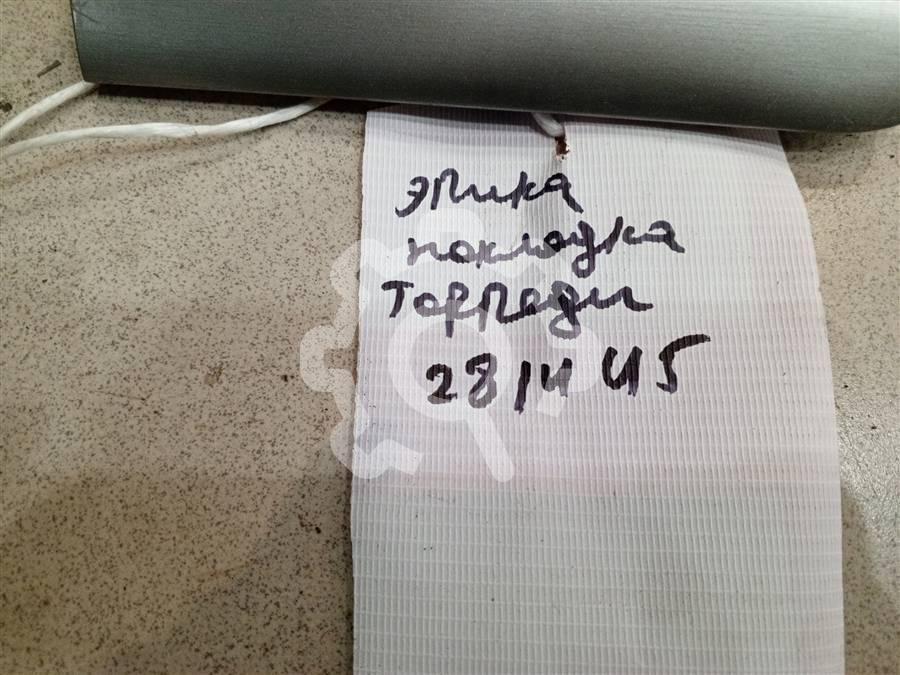 эпика
накладка
торпеды
281445